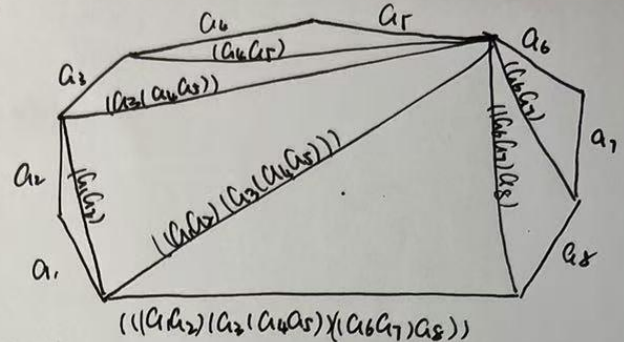 a₄
a₅
a₆
(a₄a₅)
a₃
(a₃(a₄a₅))
(a₆a₇)
a₇
a₂
(a₁a₂)
((a₁a₂)(a₃(a₄a₅)))
((a₆a₇)a₈)
a₁
a₈
(((a₁a₂)(a₃(a₄a₅))((a₆a₇)a₈))